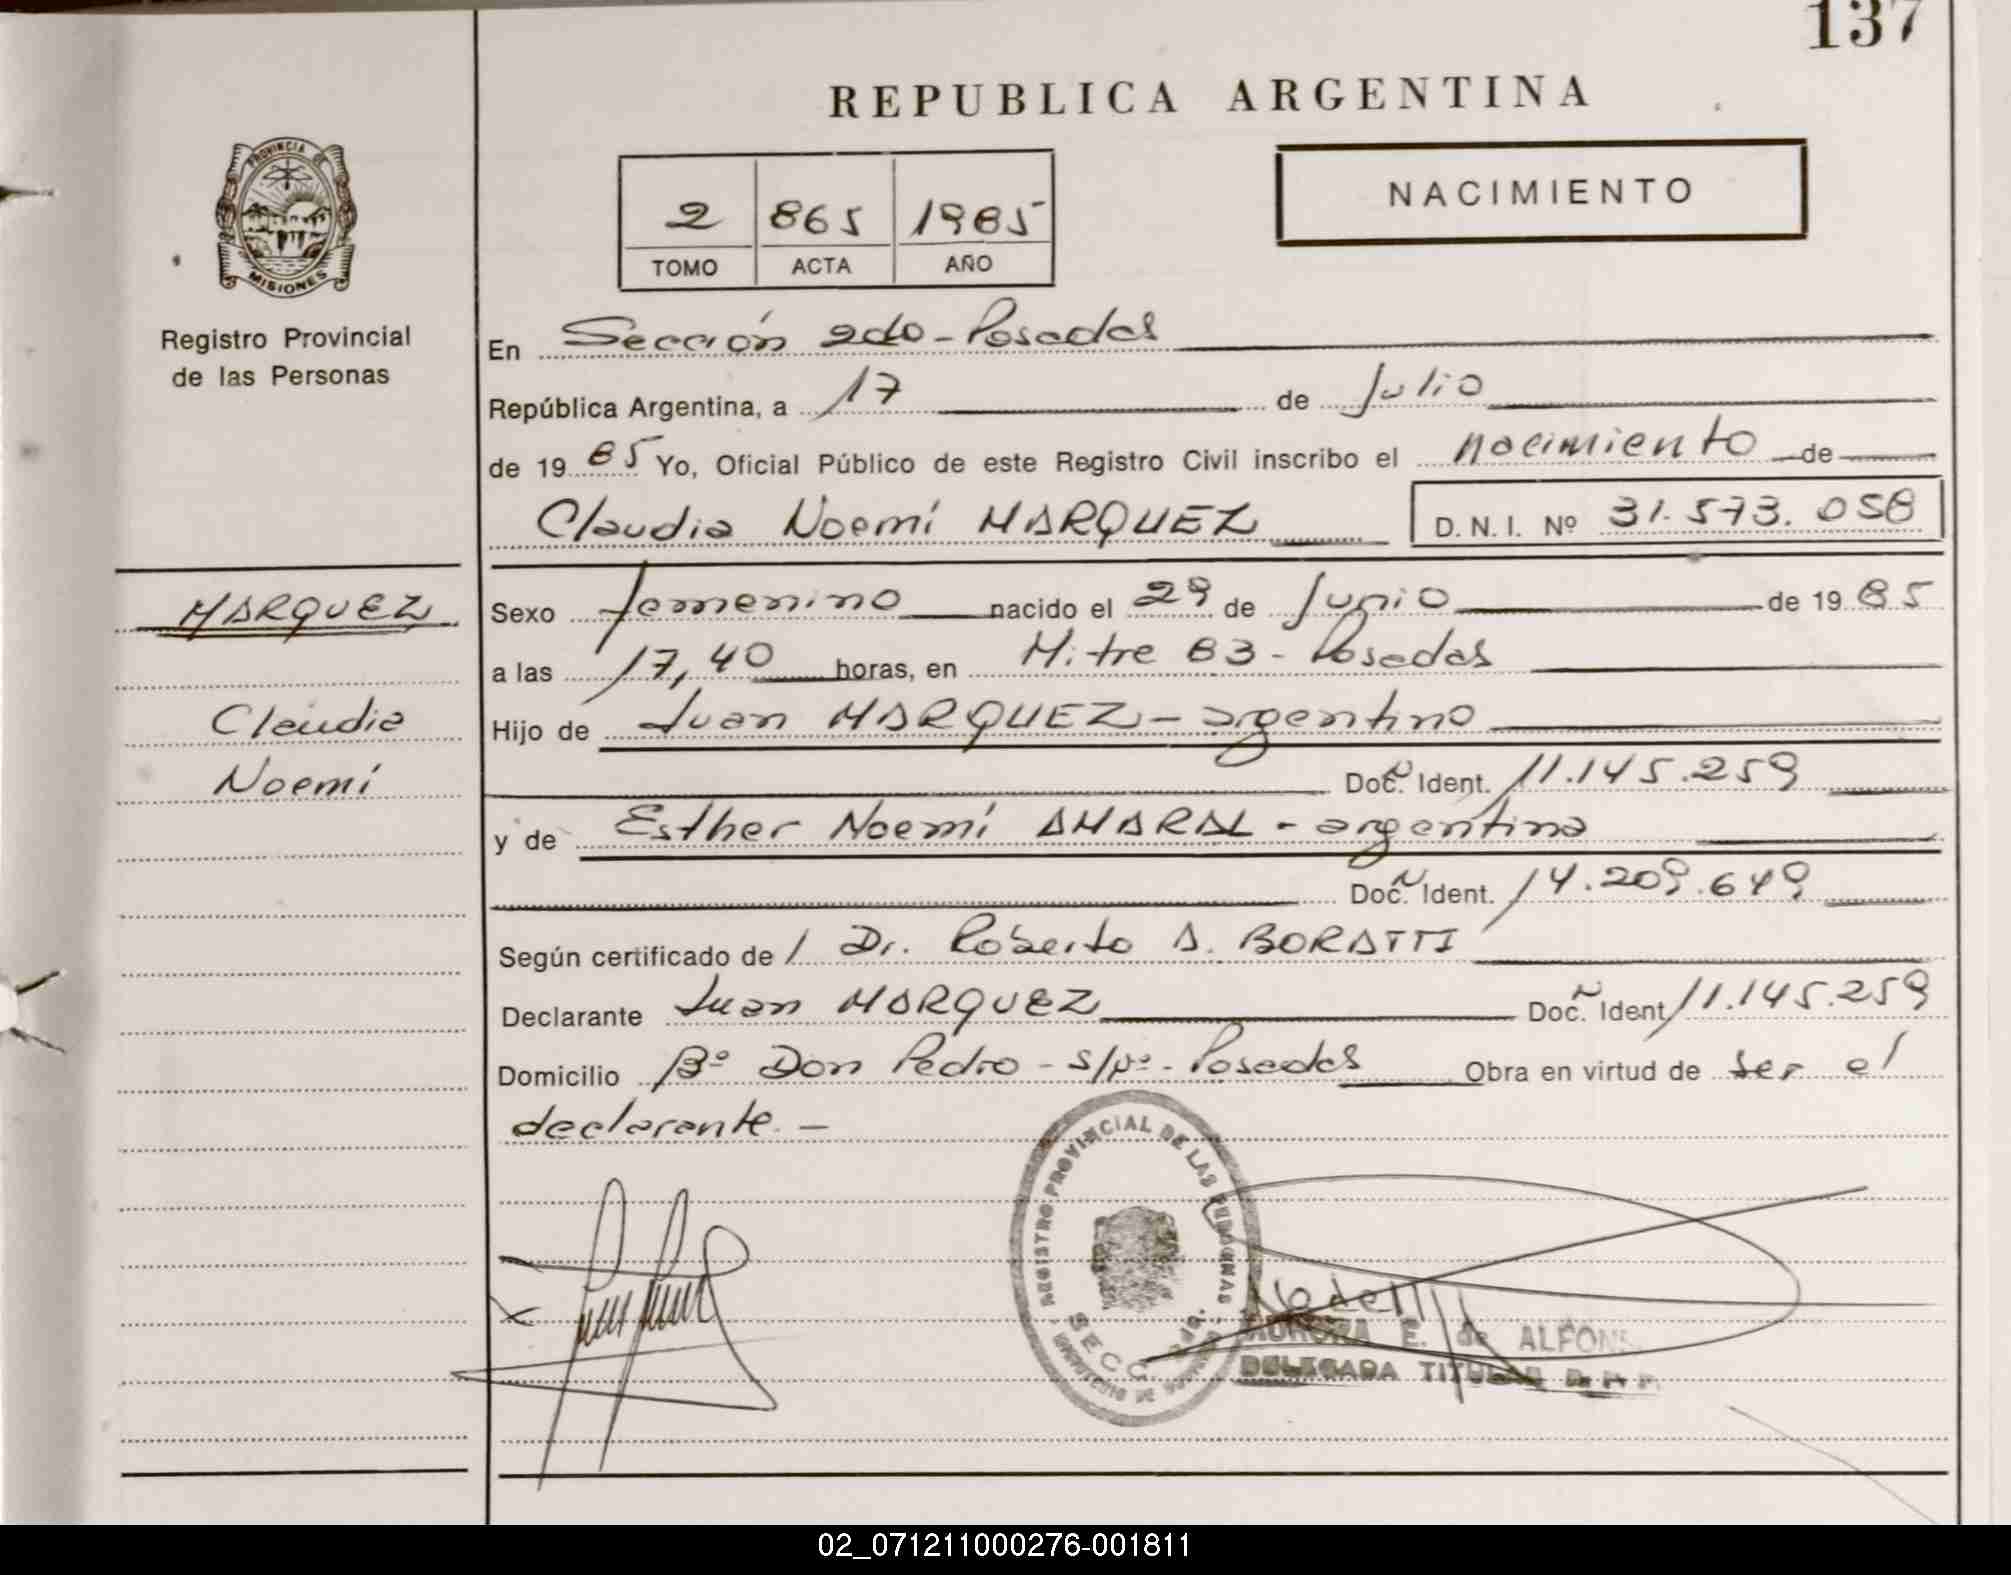 137
REPUBLICA ARGENTINA
PROVINCIA DE
MISIONES
Registro Provincial
de las Personas
2 865 1985
TOMO ACTA AÑO
NACIMIENTO
En Sección 2do - Posadas
República Argentina, a 17 de Julio
de 19 85 Yo, Oficial Público de este Registro Civil inscribo el nacimiento de
Claudia Noemí MARQUEZ D. N. I. Nº 31.573.058
MARQUEZ
Claudia
Noemí
Sexo femenino nacido el 29 de Junio de 19 85
a las 17,40 horas, en Mitre 83 - Posadas
Hijo de Juan MARQUEZ - argentino
Doc. Ident. 11.145.259
y de Esther Noemí AMARAL - argentina
Doc. Ident. 14.209.649
Según certificado de / Dr. Roberto A. BORATTI
Declarante Juan MARQUEZ Doc. Ident 11.145.259
Domicilio Bº Don Pedro - s/nº - Posadas Obra en virtud de ser el
declarante. -
REGISTRO PROVINCIAL DE LAS PERSONAS
SECC. 2da.
AURORA E. de ALFONS
DELEGADA TITULAR R. P. P.
02_071211000276-001811